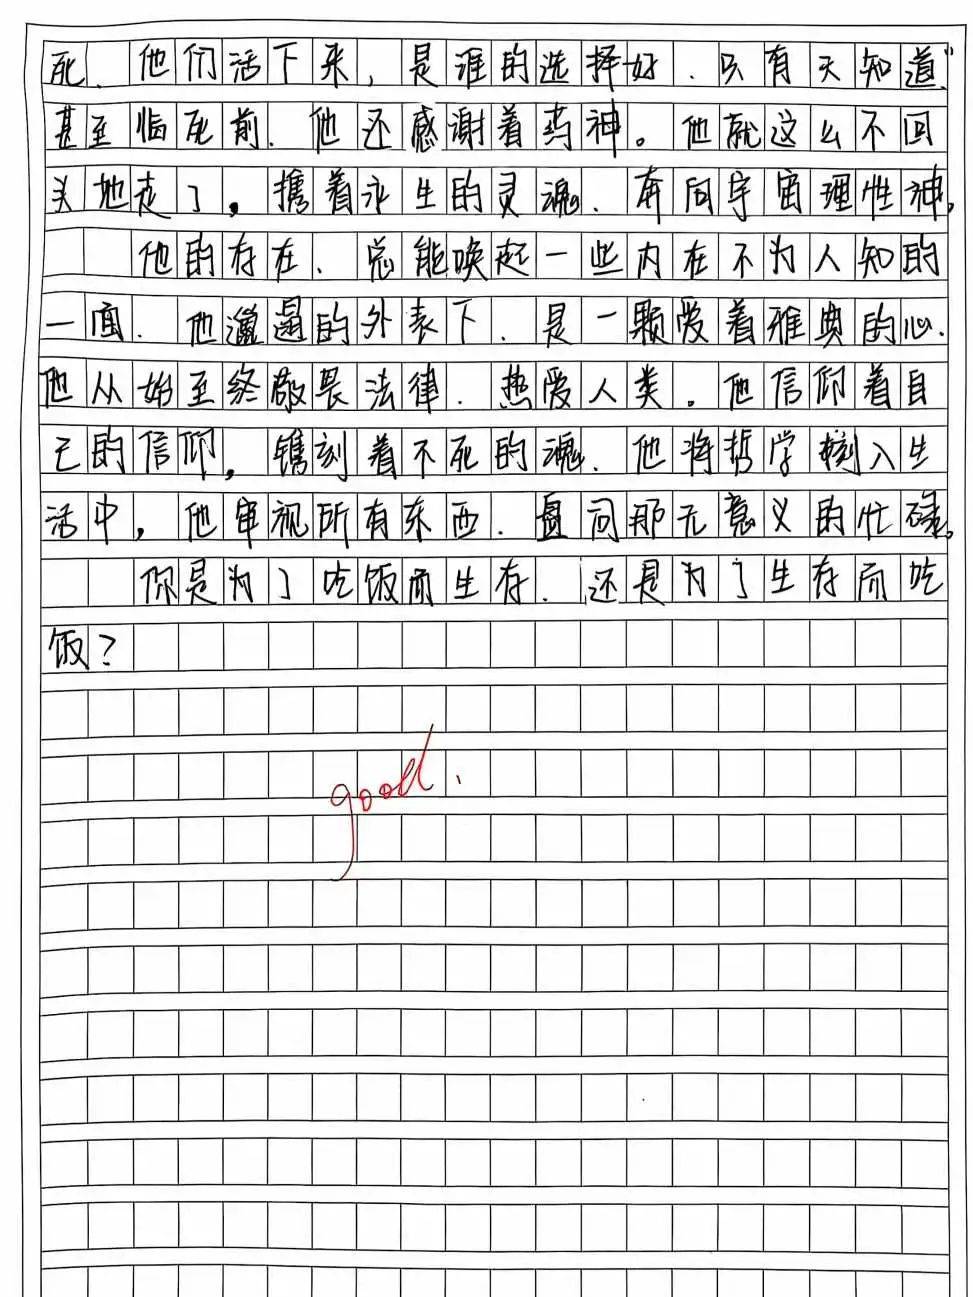 死．他们活下来，是谁的选择好．只有天知道．”
甚至临死前．他还感谢着药神。他就这么不回
头地走了。携着永生的灵魂．奔向宇宙理性神。
他的存在．总能唤起一些内在不为人知的
一面．他邋遢的外表下．是一颗爱着雅典的心．
他从始至终敬畏法律．热爱人类。他信仰着自
己的信仰，镌刻着不死的魂．他将哲学刻入生
活中，他审视所有东西．盘问那无意义的忙碌。
你是为了吃饭而生存．还是为了生存而吃
饭？
good.